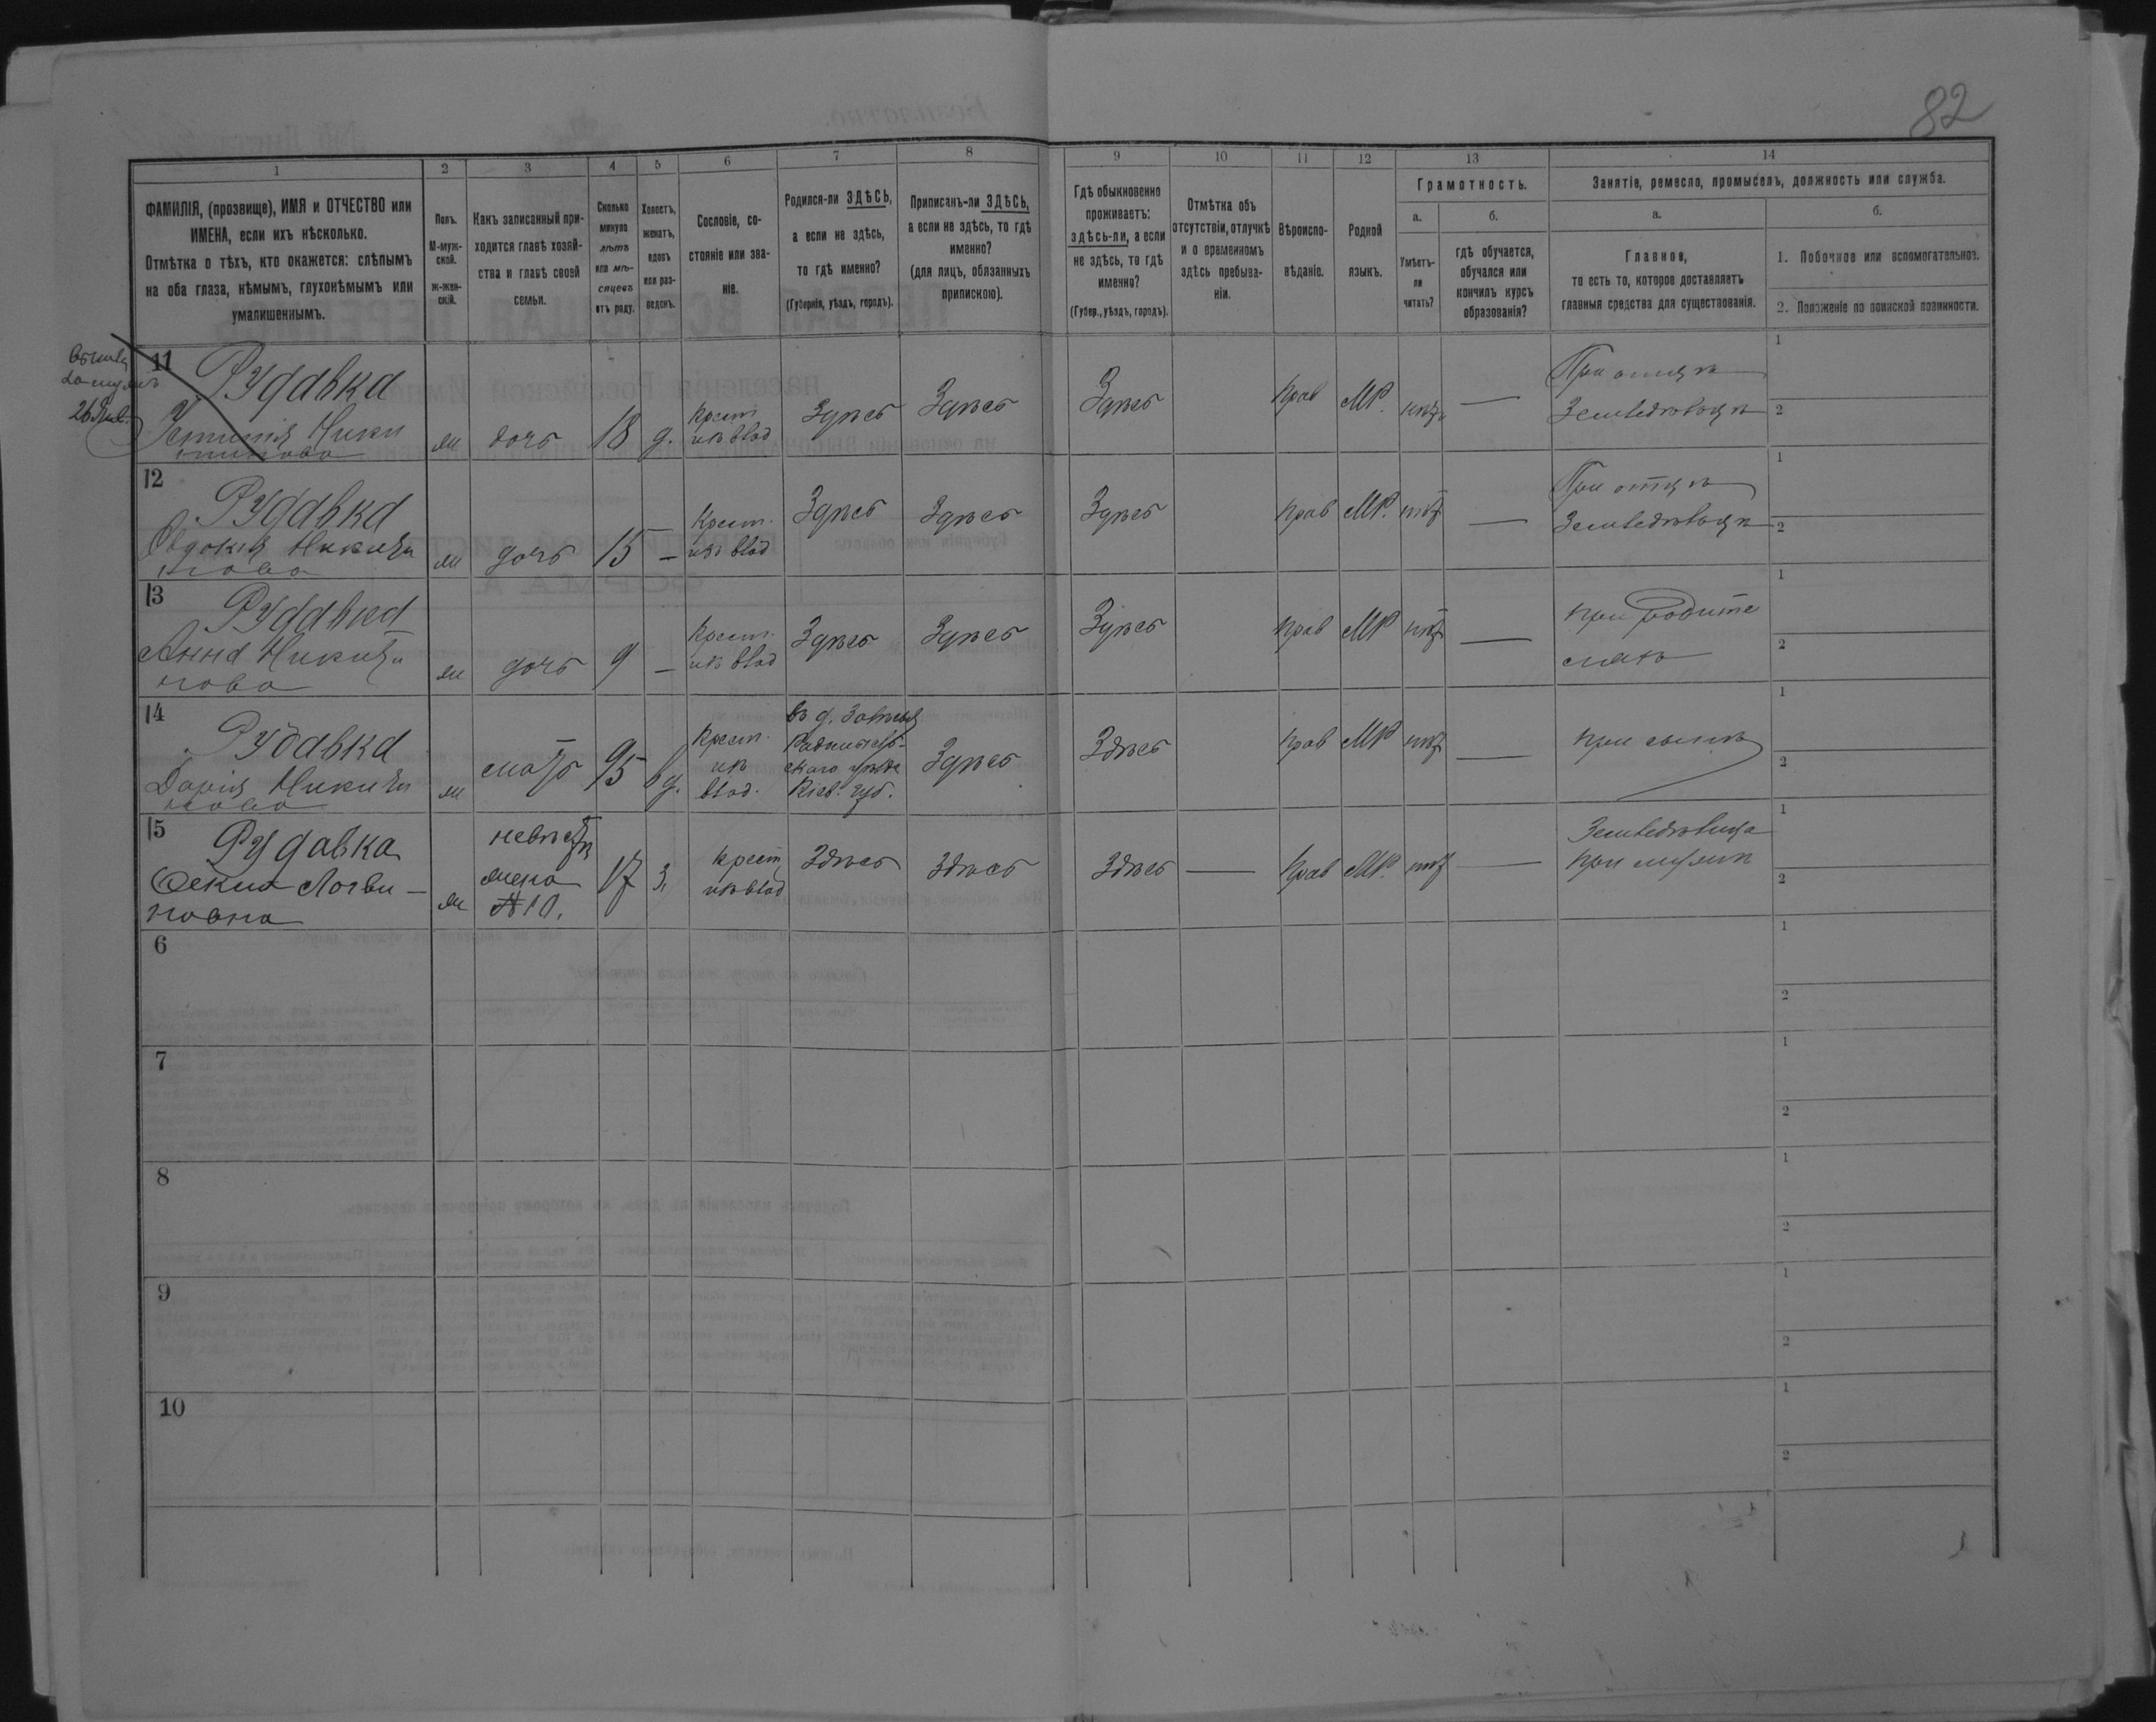 82
1
2
3
4
5
6
7
8
9
10
11
12
13
14
ФАМИЛІЯ, (прозвище), ИМЯ и ОТЧЕСТВО или
ИМЕНА, если ихъ нѣсколько.
Отмѣтка о тѣхъ, кто окажется: слѣпымъ
на оба глаза, нѣмымъ, глухонѣмымъ или
умалишеннымъ.
Полъ.
М-муж-
ской.
ж-жен-
скій.
Какъ записанный при-
ходится главѣ хозяй-
ства и главѣ своей
семьи.
Сколько
минуло
лѣтъ
или мѣ-
сяцевъ
отъ роду.
Холостъ,
женатъ,
вдовъ
или раз-
веденъ.
Сословіе, со-
стояніе или зва-
ніе.
Родился-ли ЗДѢСЬ,
а если не здѣсь,
то гдѣ именно?
(Губернія, уѣздъ, городъ).
Приписанъ-ли ЗДѢСЬ,
а если не здѣсь, то гдѣ
именно?
(для лицъ, обязанныхъ
припискою).
Гдѣ обыкновенно
проживаетъ:
здѣсь-ли, а если
не здѣсь, то гдѣ
именно?
(Губер., уѣздъ, городъ).
Отмѣтка объ
отсутствіи, отлучкѣ
и о временномъ
здѣсь пребыва-
ніи.
Вѣроиспо-
вѣданіе.
Родной
языкъ.
Грамотность.
а.
Умѣетъ-
ли
читать?
б.
гдѣ обучается,
обучался или
кончилъ курсъ
образованія?
Занятіе, ремесло, промыселъ, должность или служба.
а.
Главное,
то есть то, которое доставляетъ
главныя средства для существованія.
б.
1. Побочное или вспомогательное.
2. Положеніе по воинской повинности.
26 Янв.
11
Рудавка
дочь
18
д.
Крест
изъ влад
Здѣсь
Здѣсь
Здѣсь
Прав
МР.
нѣт
—
При отцѣ
Земледѣльцѣ
1
2
12
Рудавка
дочь
15
—
Крест.
изъ влад
Здѣсь
Здѣсь
Здѣсь
Прав
МР.
нѣт
—
При отцѣ
Земледѣльцѣ
1
2
13
Рудавка
Анна Никити
нова
дочь
9
—
Крест.
изъ влад
Здѣсь
Здѣсь
Здѣсь
Прав
МР
нѣт
—
при родите
ляхъ
1
2
14
Рудавка
Дарія Никити
нова
мать
95
вд.
Крест.
изъ
влад.
Кіев. губ.
Здѣсь
Здѣсь
Прав
МР
нѣт
—
при сынѣ
1
2
15
Рудавка
Логви-
новна
невѣстка
жена
№ 10.
17
З.
Крест
изъ влад
Здѣсь
Здѣсь
Здѣсь
—
Прав
МР.
нѣт
—
при мужѣ
1
2
6
1
2
7
1
2
8
1
2
9
1
2
10
1
2